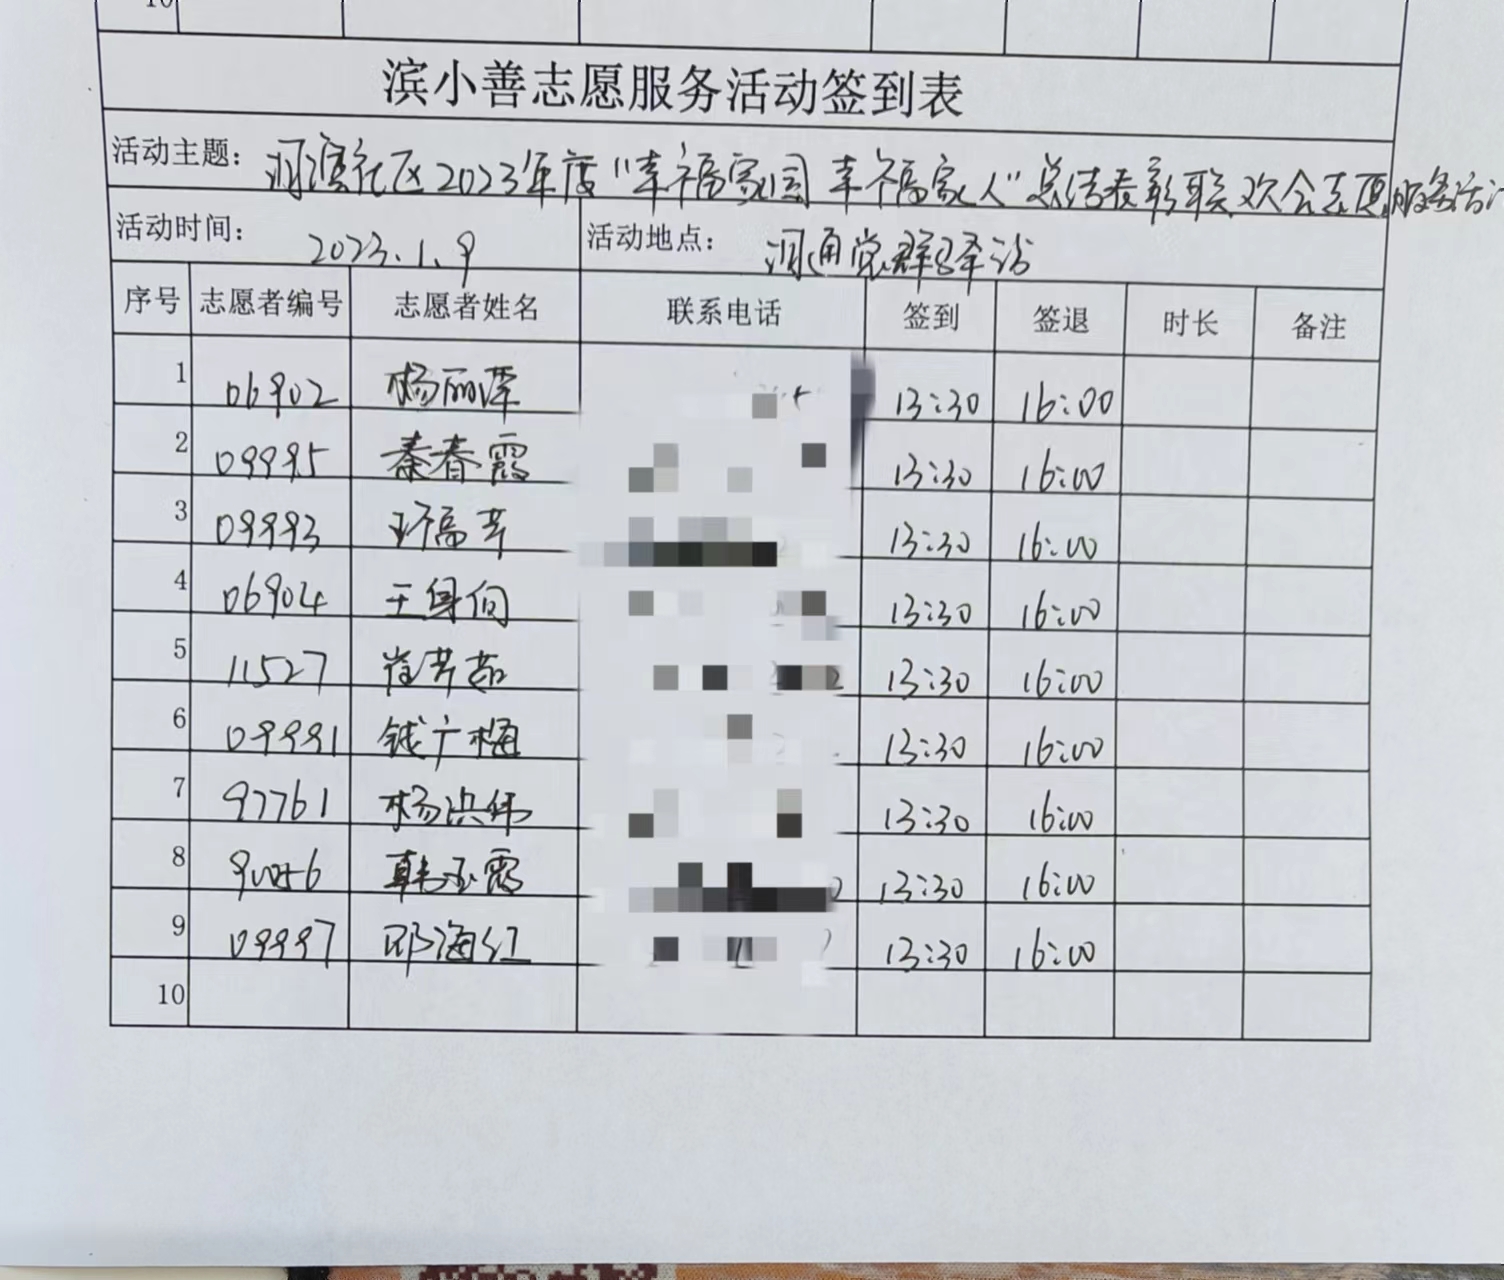 10
滨小善志愿服务活动签到表
活动主题： 河滨社区2023年度"幸福家园 幸福家人"总结表彰联欢会志愿服务活
活动时间： 2023.1.9 活动地点： 河通党群驿站
序号 志愿者编号 志愿者姓名 联系电话 签到 签退 时长 备注
1 06902 杨丽萍 13:30 16:00
2 09995 秦春霞 13:30 16:00
3 09993 13:30 16:00
4 06904 王身向 13:30 16:00
5 11527 崔芳茹 13:30 16:00
6 09991 钱广梅 13:30 16:00
7 97761 杨洪伟 13:30 16:00
8 韩玉霞 13:30 16:00
9 09997 邓海红 13:30 16:00
10